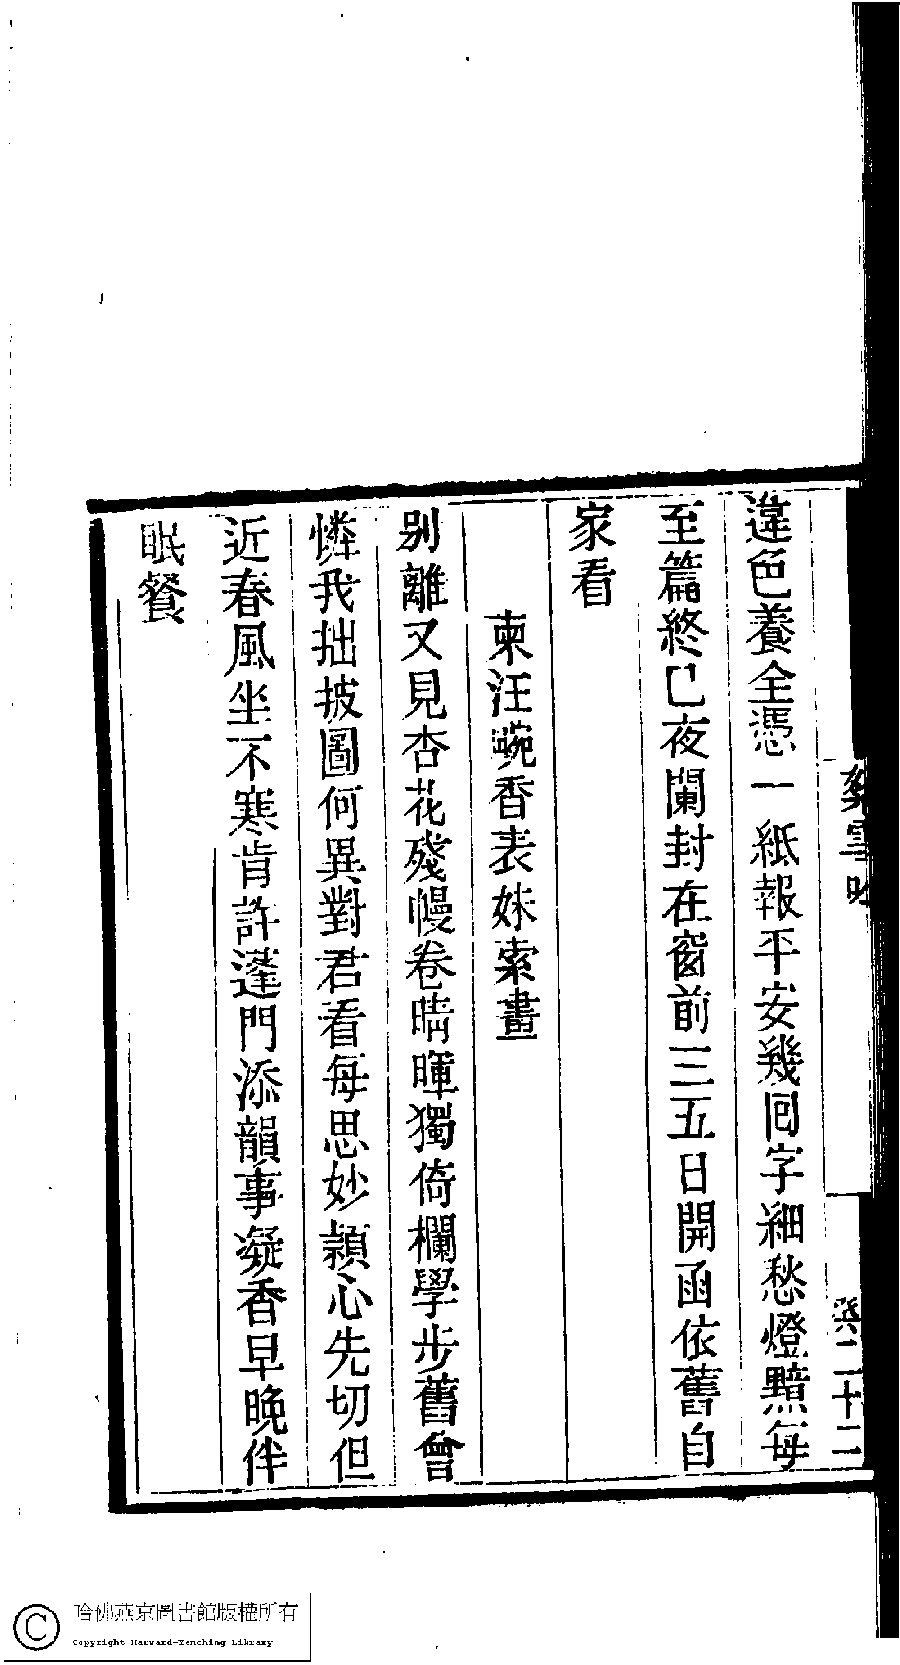 違色養全憑一紙報平安幾回字細愁燈黯每
至篇終已夜闌封在窗前三五日開函依舊自
家看
柬汪畹香表妹索畫
别離又見杏花殘幔卷晴暉獨倚欄學步舊曾
憐我拙披圖何異對君看每思妙穎心先切但
近春風坐不寒肯許蓬門添韻事凝香早晚伴
眠餐
雪吟
癸二十二
哈佛燕京圖書館版權所有
Copyright Harvard-Yenching Library